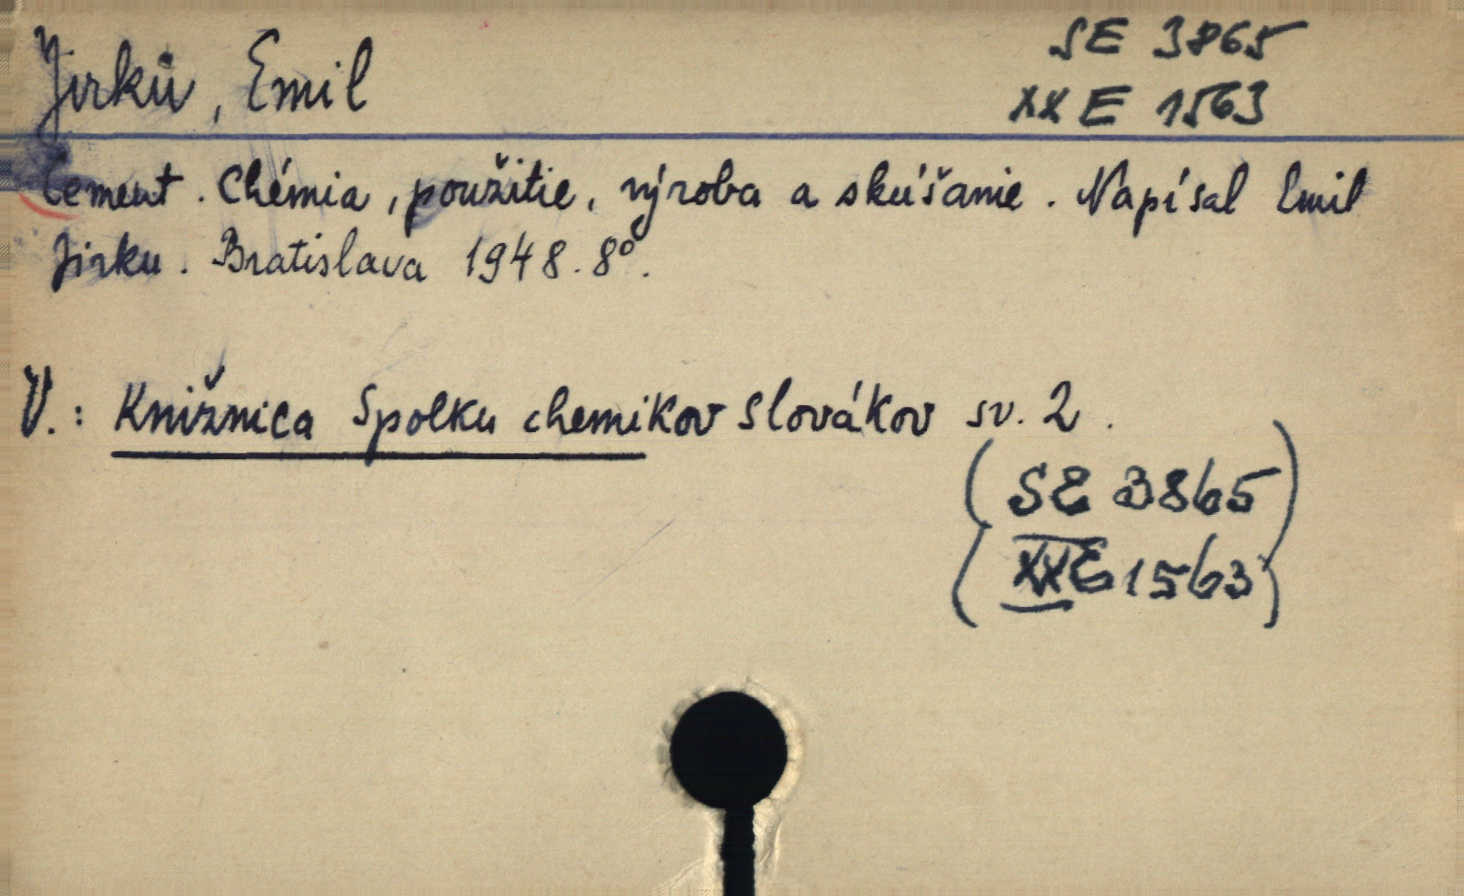 Jirků, Emil
SE 3865
XX E 1563
Cement. Chémia, použitie, výroba a skúšanie. Napísal Emil
Jirku. Bratislava 1948. 8°.
V.: Knižnica Spolku chemikov Slovákov sv. 2.
(SE 3865)
(XXE 1563)